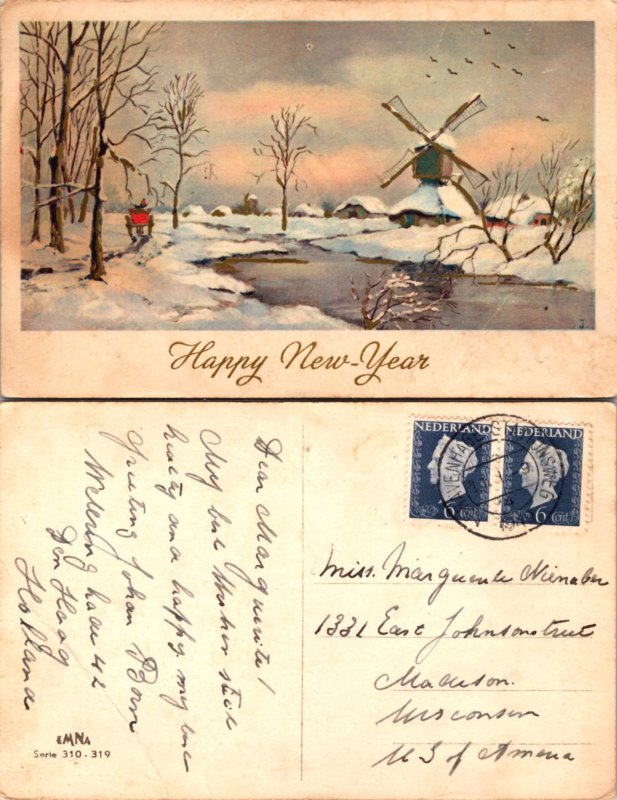 Happy New-Year
J.
Dear Marguerite!
My best Wishes
hearty and a happy my
greeting Johan Born
42
Den Haag
Holland
EMNA
Serie 310 - 319
NEDERLAND
6 Ct
NEDERLAND
6 Ct
Miss. Marguerite Nienaber
1331 East Johnsonstreet
Madison.
Wisconsin
U S of America